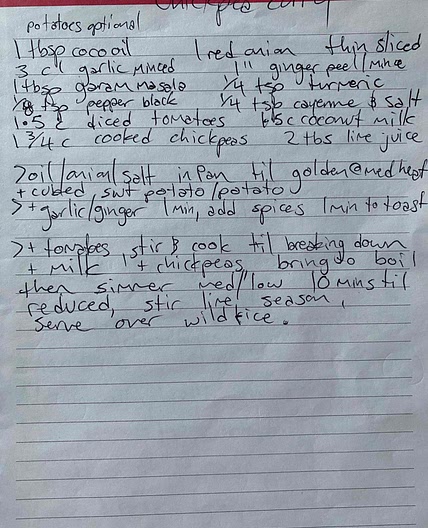 Chickpea curry
potatoes optional
1 tbsp coco oil 1 red onion thin sliced
3 cl garlic minced 1" ginger peel/mince
1 tbsp garam masala 1/4 tsp turmeric
1/8 tsp pepper black 1/4 tsp cayenne & salt
1.5 c diced tomatoes 1.5c coconut milk
1 3/4 c cooked chickpeas 2 tbs lime juice
>oil/onion/salt in pan til golden@med heat
+ cubed swt potato/potato
>+garlic/ginger 1min, add spices 1min to toast
>+ tomatoes stir & cook til breaking down
+ milk + chickpeas bring to boil
then simmer med/low 10 mins til
reduced, stir lime, season,
serve over wild rice.